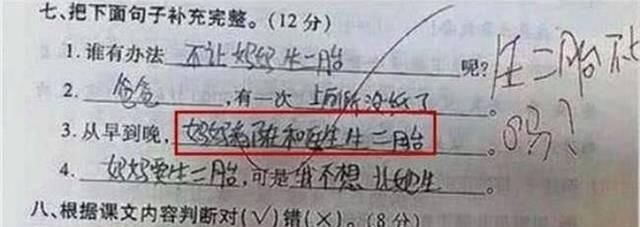 七、把下面句子补充完整。(12分)
1. 谁有办法 不让妈妈生二胎 呢?
生二胎不
吗?
2. 爸爸 ,有一次 上厕所没纸了 。
3. 从早到晚, 妈妈 和医生生二胎 。
4. 妈妈要生二胎 ,可是 我不想让她生 。
八、根据课文内容判断对(√)错(×)。(8分)